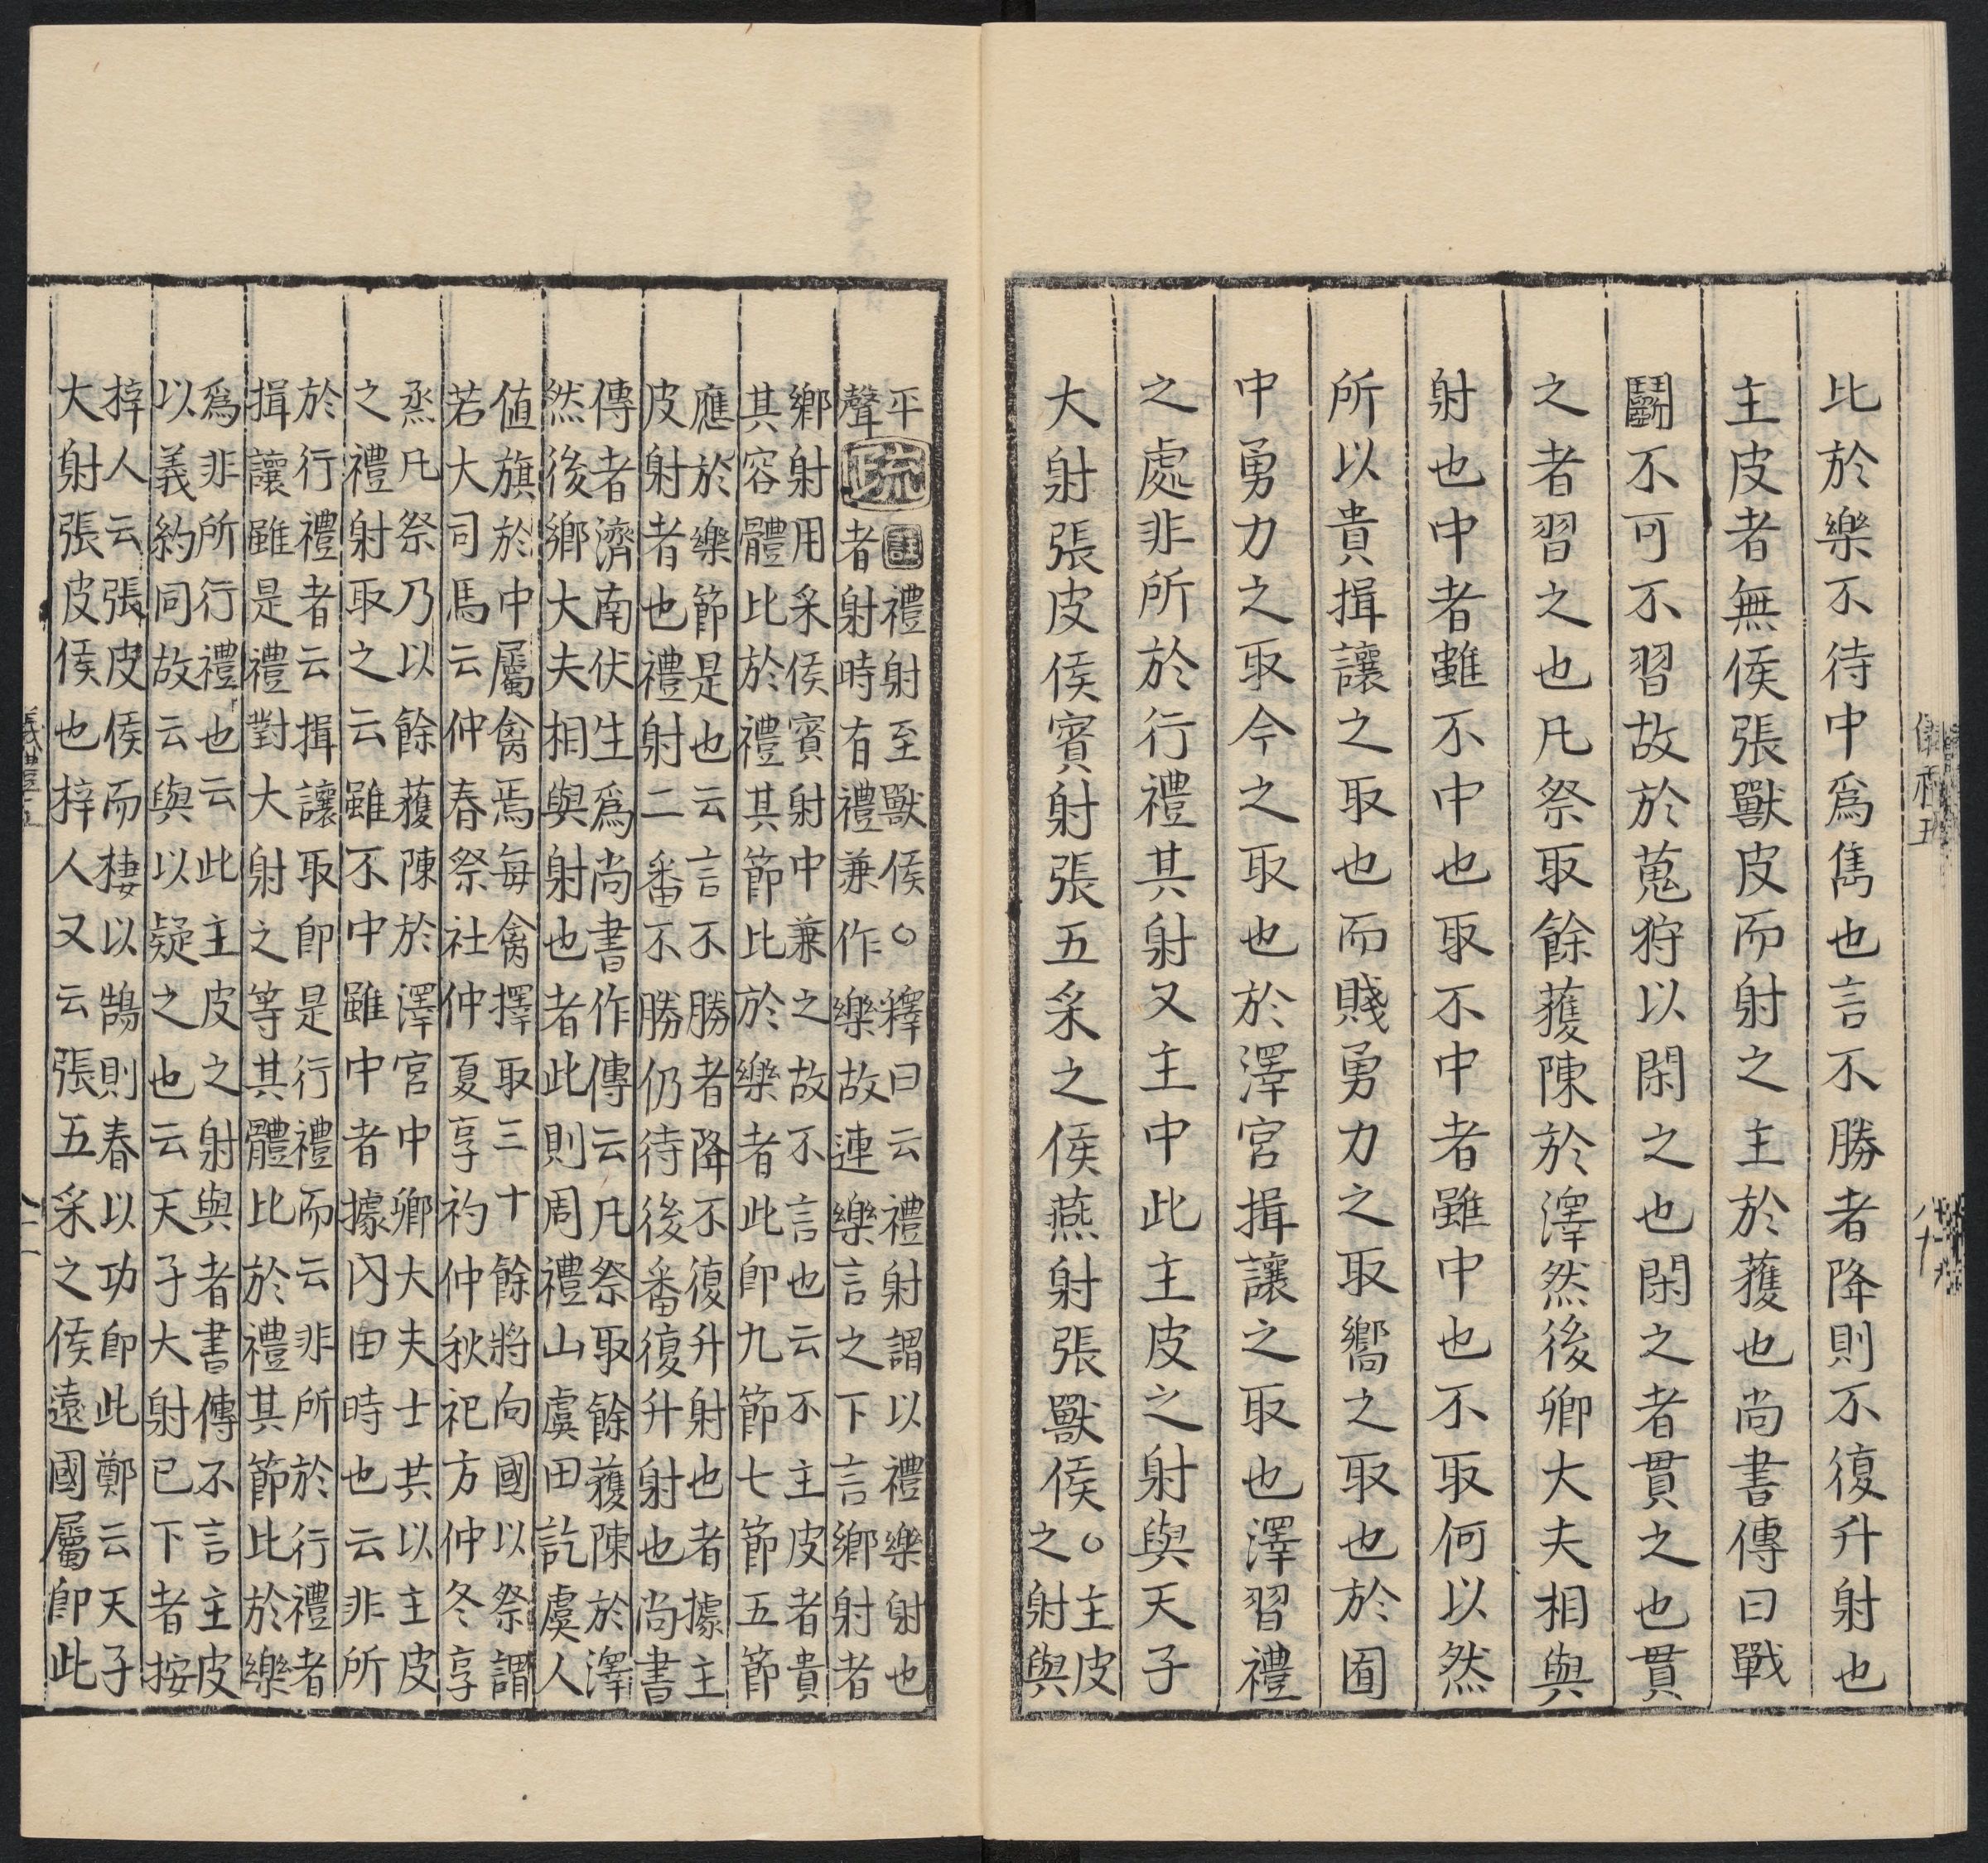 比於樂不待中爲雋也言不勝者降則不復升射也
主皮者無侯張獸皮而射之主於䕶也尚書傳曰戰
鬭不可不習故於蒐狩以閑之也閑之者貫之也貫
之者習之也凡祭取餘䕶陳於澤然後卿大夫相與
射也中者雖不中也取不中者雖中也不取何以然
所以貴揖讓之取也而賤勇力之取嚮之取也於囿
中勇力之取今之取也於澤宮揖讓之取也澤習禮
之處非所於行禮其射又主中此主皮之射與天子
大射張皮侯賓射張五采之侯燕射張獸侯○主皮
之射與
平
聲疏
註禮射至獸侯○釋曰云禮射謂以禮樂射也
者射時有禮兼作樂故連樂言之下言鄉射者
鄉射用采侯賓射中兼之故不言也云不主皮者貴
其容體比於禮其節比於樂者此卽九節七節五節
應於樂節是也云言不勝者降不復升射也者據主
皮射者也禮射二番不勝仍待後番復升射也尚書
傳者濟南伏生爲尚書作傳云凡祭取餘䕶陳於澤
然後鄉大夫相與射也者此則周禮山虞田訖虞人
値旗於中屬禽焉每禽擇取三十餘將向國以祭謂
若大司馬云仲春祭社仲夏享礿仲秋祀方仲冬享
烝凡祭乃以餘䕶陳於澤宮中卿大夫士共以主皮
之禮射取之云雖不中雖中者據囚田時也云非所
於行禮者云揖讓取卽是行禮而云非所於行禮者
揖讓雖是禮對大射之等其體比於禮其節比於樂
爲非所行禮也云此主皮之射與者書傳不言主皮
以義約同故云與以疑之也云天子大射已下者按
梓人云張皮侯而棲以鵠則春以功卽此鄭云天子
大射張皮侯也梓人又云張五采之侯遠國屬卽此